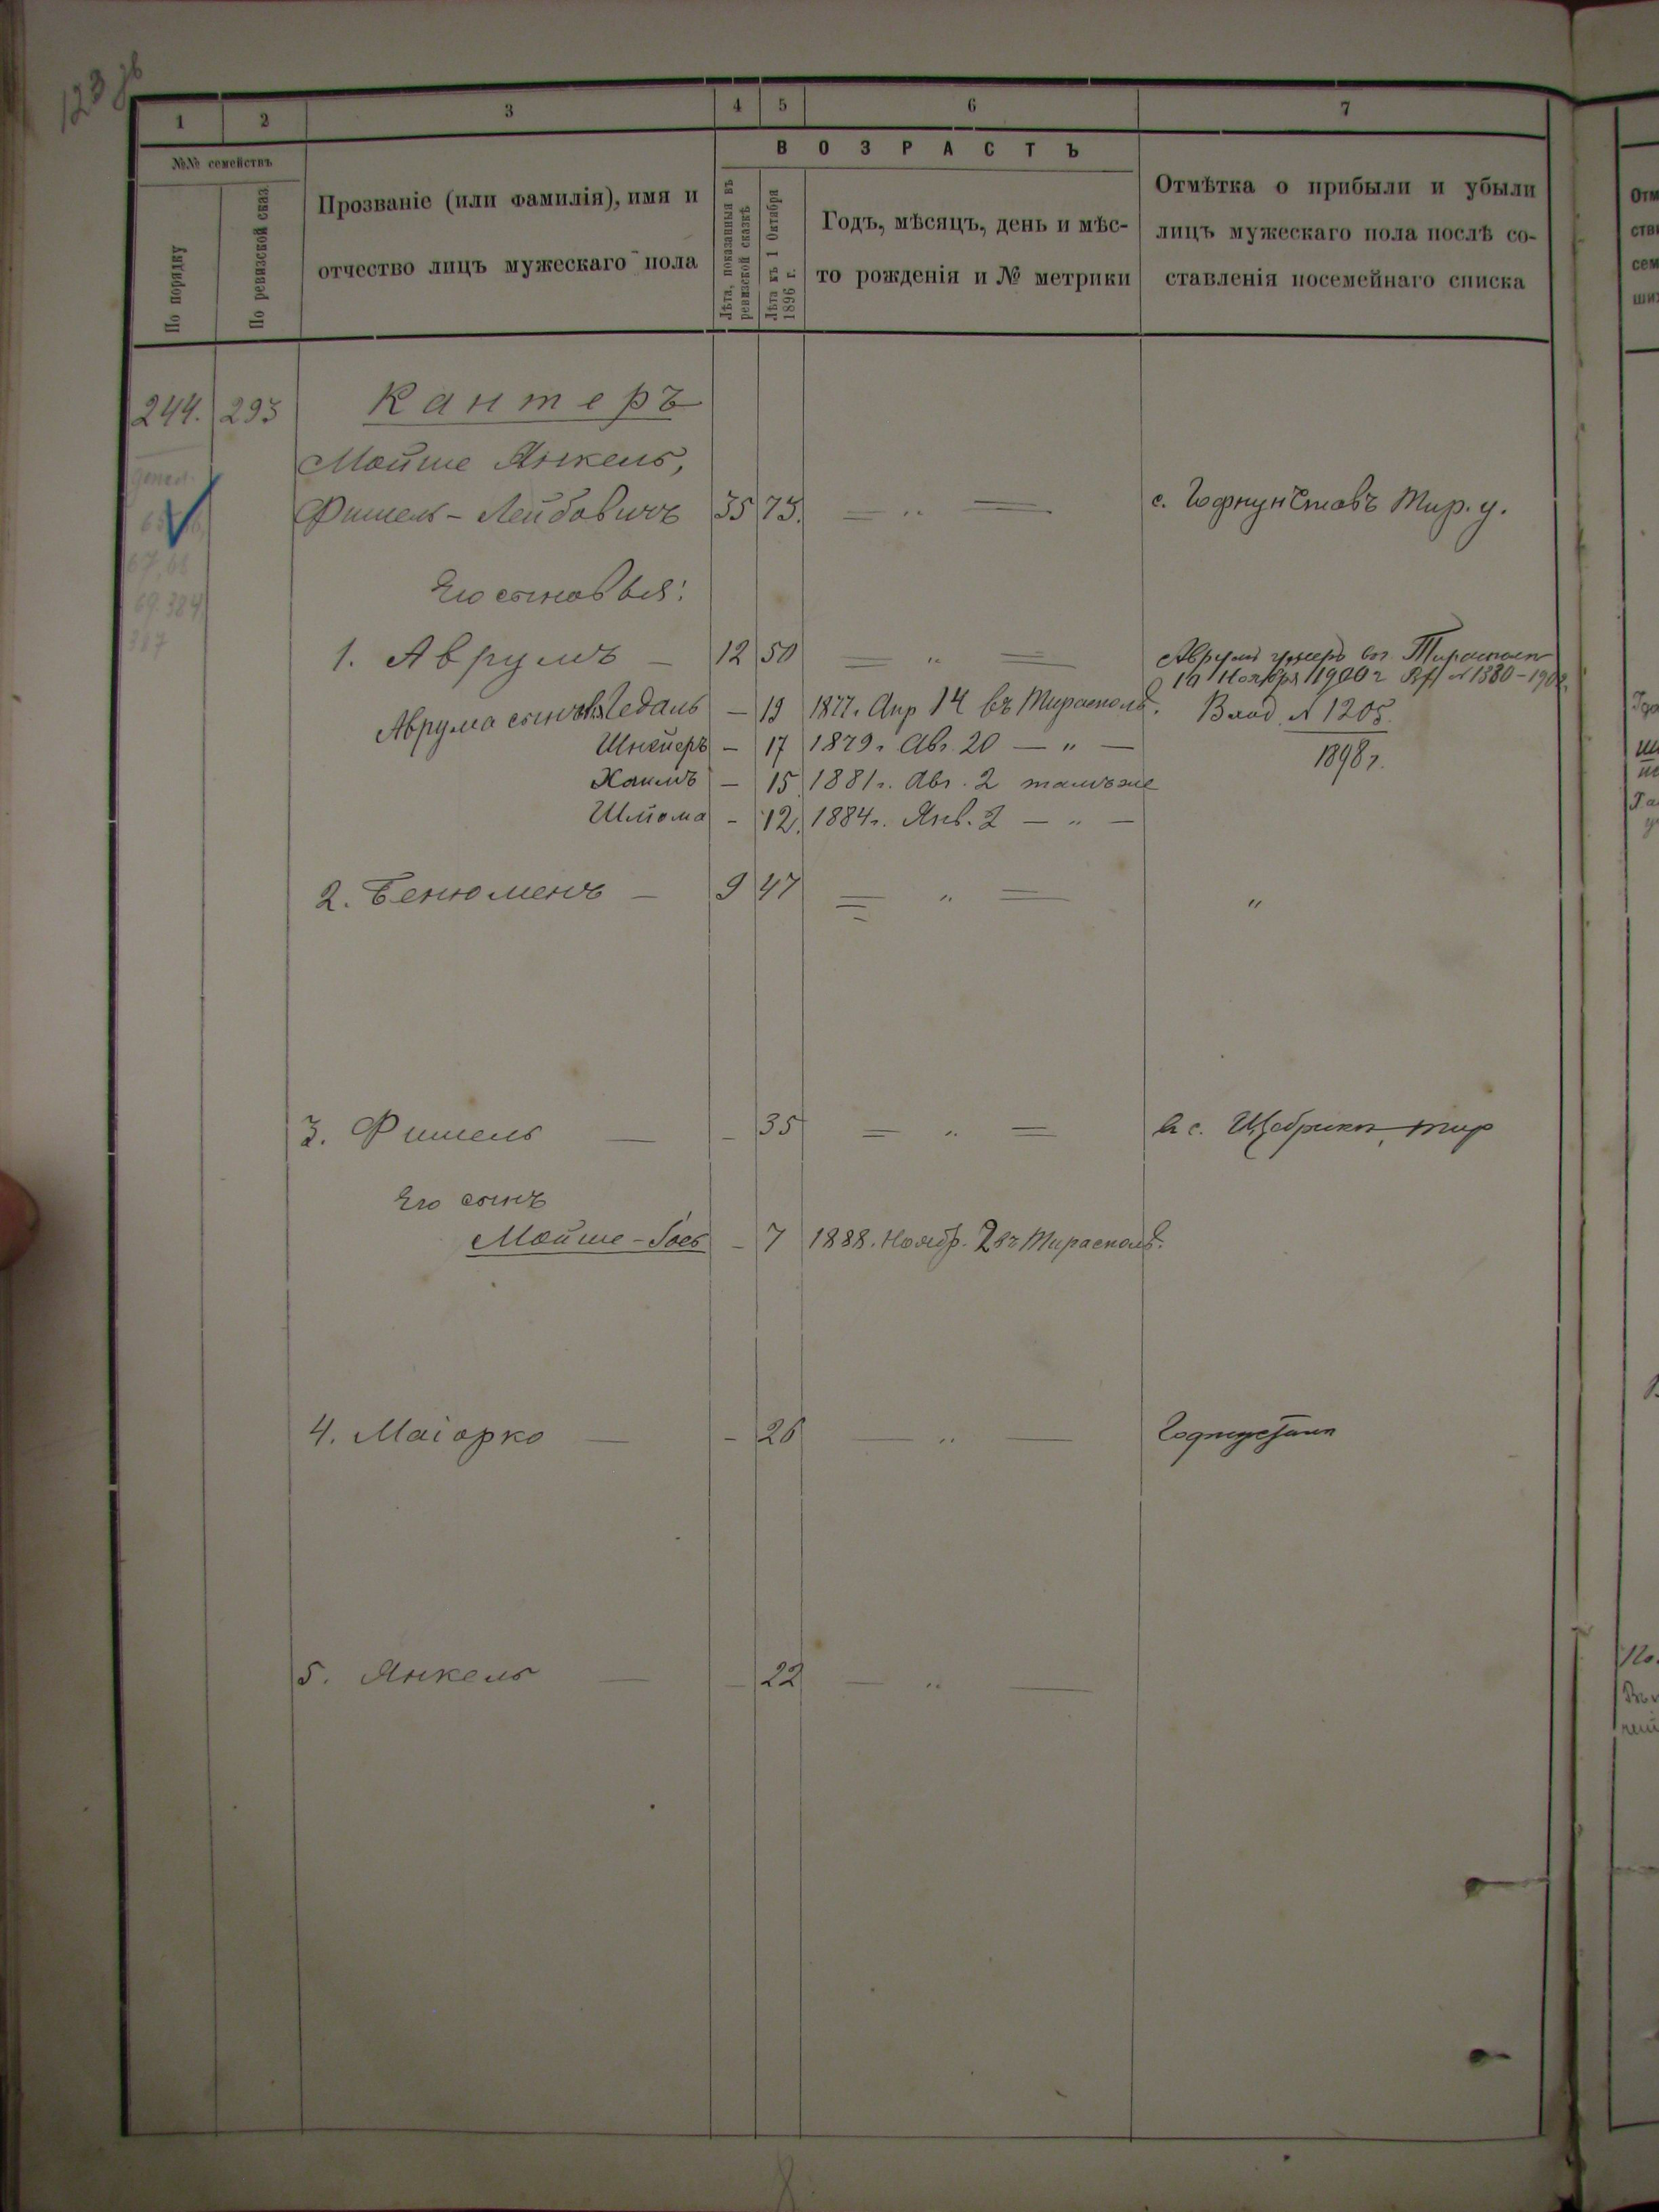 1 2 3 4 5 6 7
№№ семействъ
По порядку
По ревизской сказ
Прозваніе (или фамилія), имя и
отчество лицъ мужескаго пола
ВОЗРАСТЪ
Лѣта, показанныя въ
ревизской сказкѣ
Лѣта къ 1 Октября
1896 г.
Годъ, мѣсяцъ, день и мѣс-
то рожденія и № метрики
Отмѣтка о прибыли и убыли
лицъ мужескаго пола послѣ со-
ставленія посемейнаго списка
244. 293 Кантеръ
Мойше Янкель,
Фишель-Лейбовичъ 35 73. = " = с. Тир. у.
Его сыновья:
1. Аврумъ — 12 50 = " = Аврумъ умеръ въ Тирасполѣ
10 Ноября 1900 г № 1380-1902
Аврума сыновья Гедаль — 19 1877. Апр 14 въ Тирасполѣ. Вход № 1205
Шнейеръ — 17 1879 г. Авг. 20 — " — 1898 г.
Хаимъ — 15 1881 г. Авг. 2 тамъже
Шлиома — 12. 1884 г. Янв. 2 — " —
2. Бенюменъ — 9 47 = " = "
3. Фишель — – 35 = " = с. Тир
Его сынъ
Мойше-Іось – 7 1888. Ноябр. 2 въ Тирасполѣ.
4. Маіорко — – 26 — " —
5. Янкель — – 22 — " —